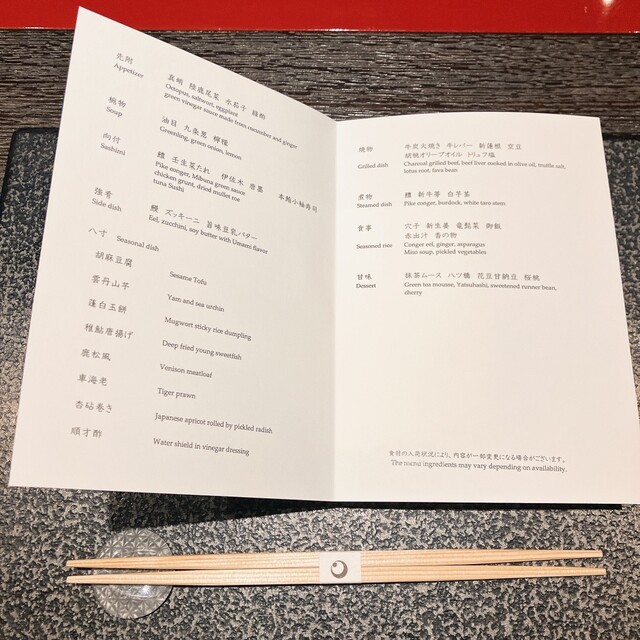 先附
Appetizer
真蛸 陸鹿尾菜 水茄子 緑酢
Octopus, saltwort, eggplant
green vinegar sauce made from cucumber and ginger
椀物
Soup
油目 九条葱 檸檬
Greenling, green onion, lemon
向付
Sashimi
鱧 壬生菜たれ 伊佐木 唐墨 本鮪小袖寿司
Pike conger, Mibuna green sauce
chicken grunt, dried mullet roe
tuna Sushi
強肴
Side dish
鰻 ズッキーニ 旨味豆乳バター
Eel, zucchini, soy butter with Umami flavor
八寸 Seasonal dish
胡麻豆腐 Sesame Tofu
雲丹山芋 Yam and sea urchin
蓬白玉餅 Mugwort sticky rice dumpling
稚鮎唐揚げ Deep fried young sweetfish
鹿松風 Venison meatloaf
車海老 Tiger prawn
杏砧巻き Japanese apricot rolled by pickled radish
順才酢 Water shield in vinegar dressing
焼物
Grilled dish
牛炭火焼き 牛レバー 新蓮根 空豆
胡桃オリーブオイル トリュフ塩
Charcoal grilled beef, beef liver cooked in olive oil, truffle salt,
lotus root, fava bean
煮物
Steamed dish
鱧 新牛蒡 白芋茎
Pike conger, burdock, white taro stem
食事
Seasoned rice
穴子 新生姜 竜髭菜 御飯
赤出汁 香の物
Conger eel, ginger, asparagus
Miso soup, pickled vegetables
甘味
Dessert
抹茶ムース 八ツ橋 花豆甘納豆 桜桃
Green tea mousse, Yatsuhashi, sweetened runner bean,
cherry
食材の入荷状況により、内容が一部変更になる場合がございます。
The menu ingredients may vary depending on availability.